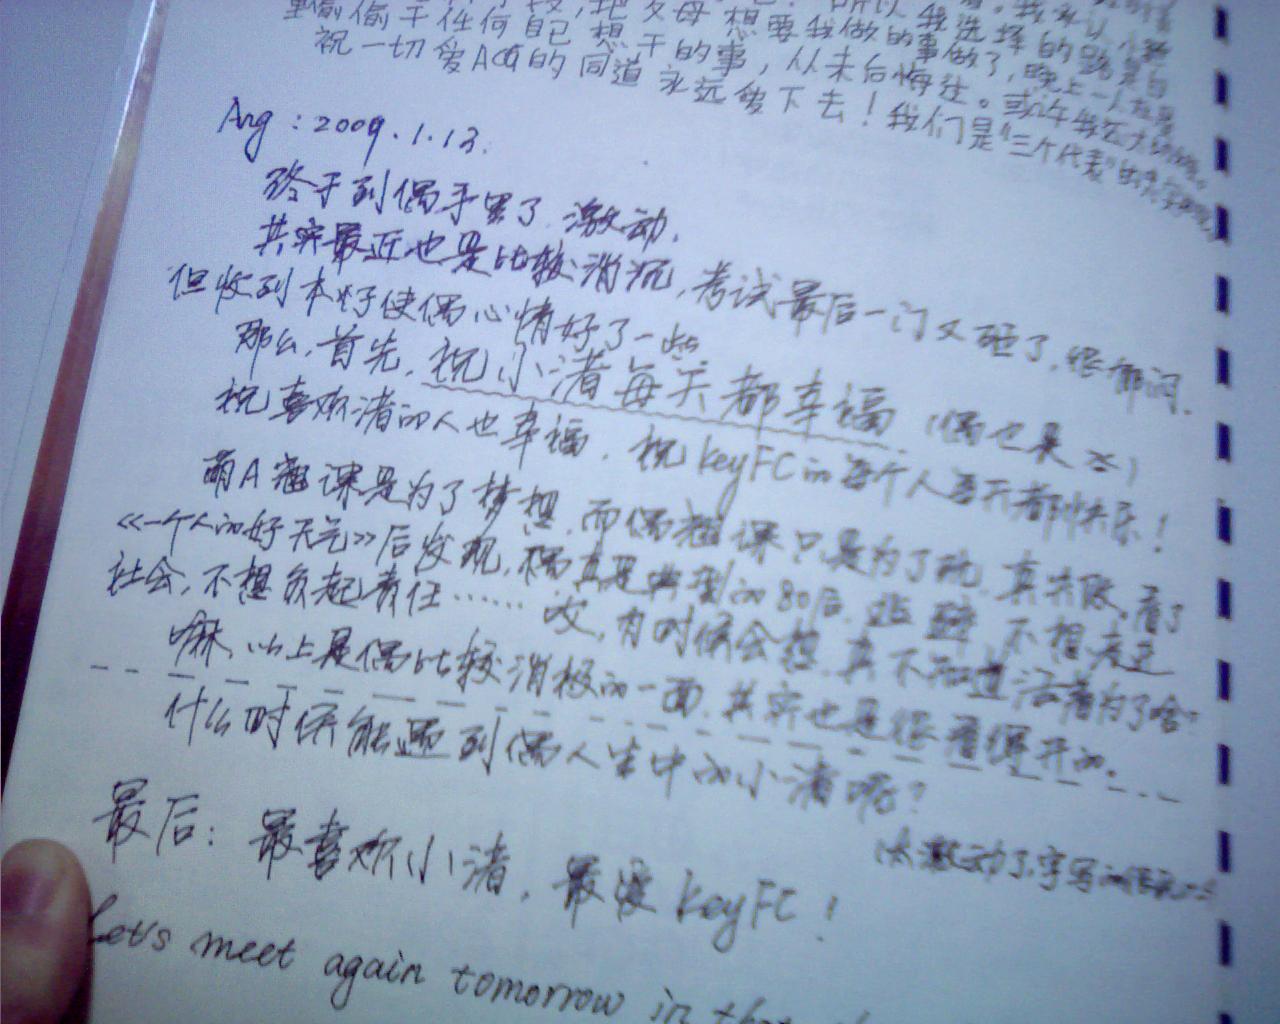 重偷偷干任何自己想干的事，从未后悔过。或许
祝一切爱ACG的同道永远馊下去！我们是"三个代表"的
Arg：2009.1.13.
终于到偶手里了，激动，
其实最近也是比较消沉，考试最后一门又砸了，很郁闷.
但收到本子使偶心情好了一些
那么，首先，祝小渚每天都幸福（偶也是 ）
祝喜欢渚的人也幸福．祝KeyFC的每个人每天都快乐！
萌A翘课是为了梦想，而偶翘课只是为了玩，真失败，看了
《一个人的好天气》后发现，偶真是典型的80后，不想走进
社会，不想负起责任……哎，有时候会想，真不知道活着为了啥?
嘛，以上是偶比较消极的一面，其实也是很看得开的．
什么时候能遇到偶人生中的小渚呢？
（太激动了，字写的很
最后：最喜欢小渚，最爱KeyFC！
Let's meet again tomorrow in that